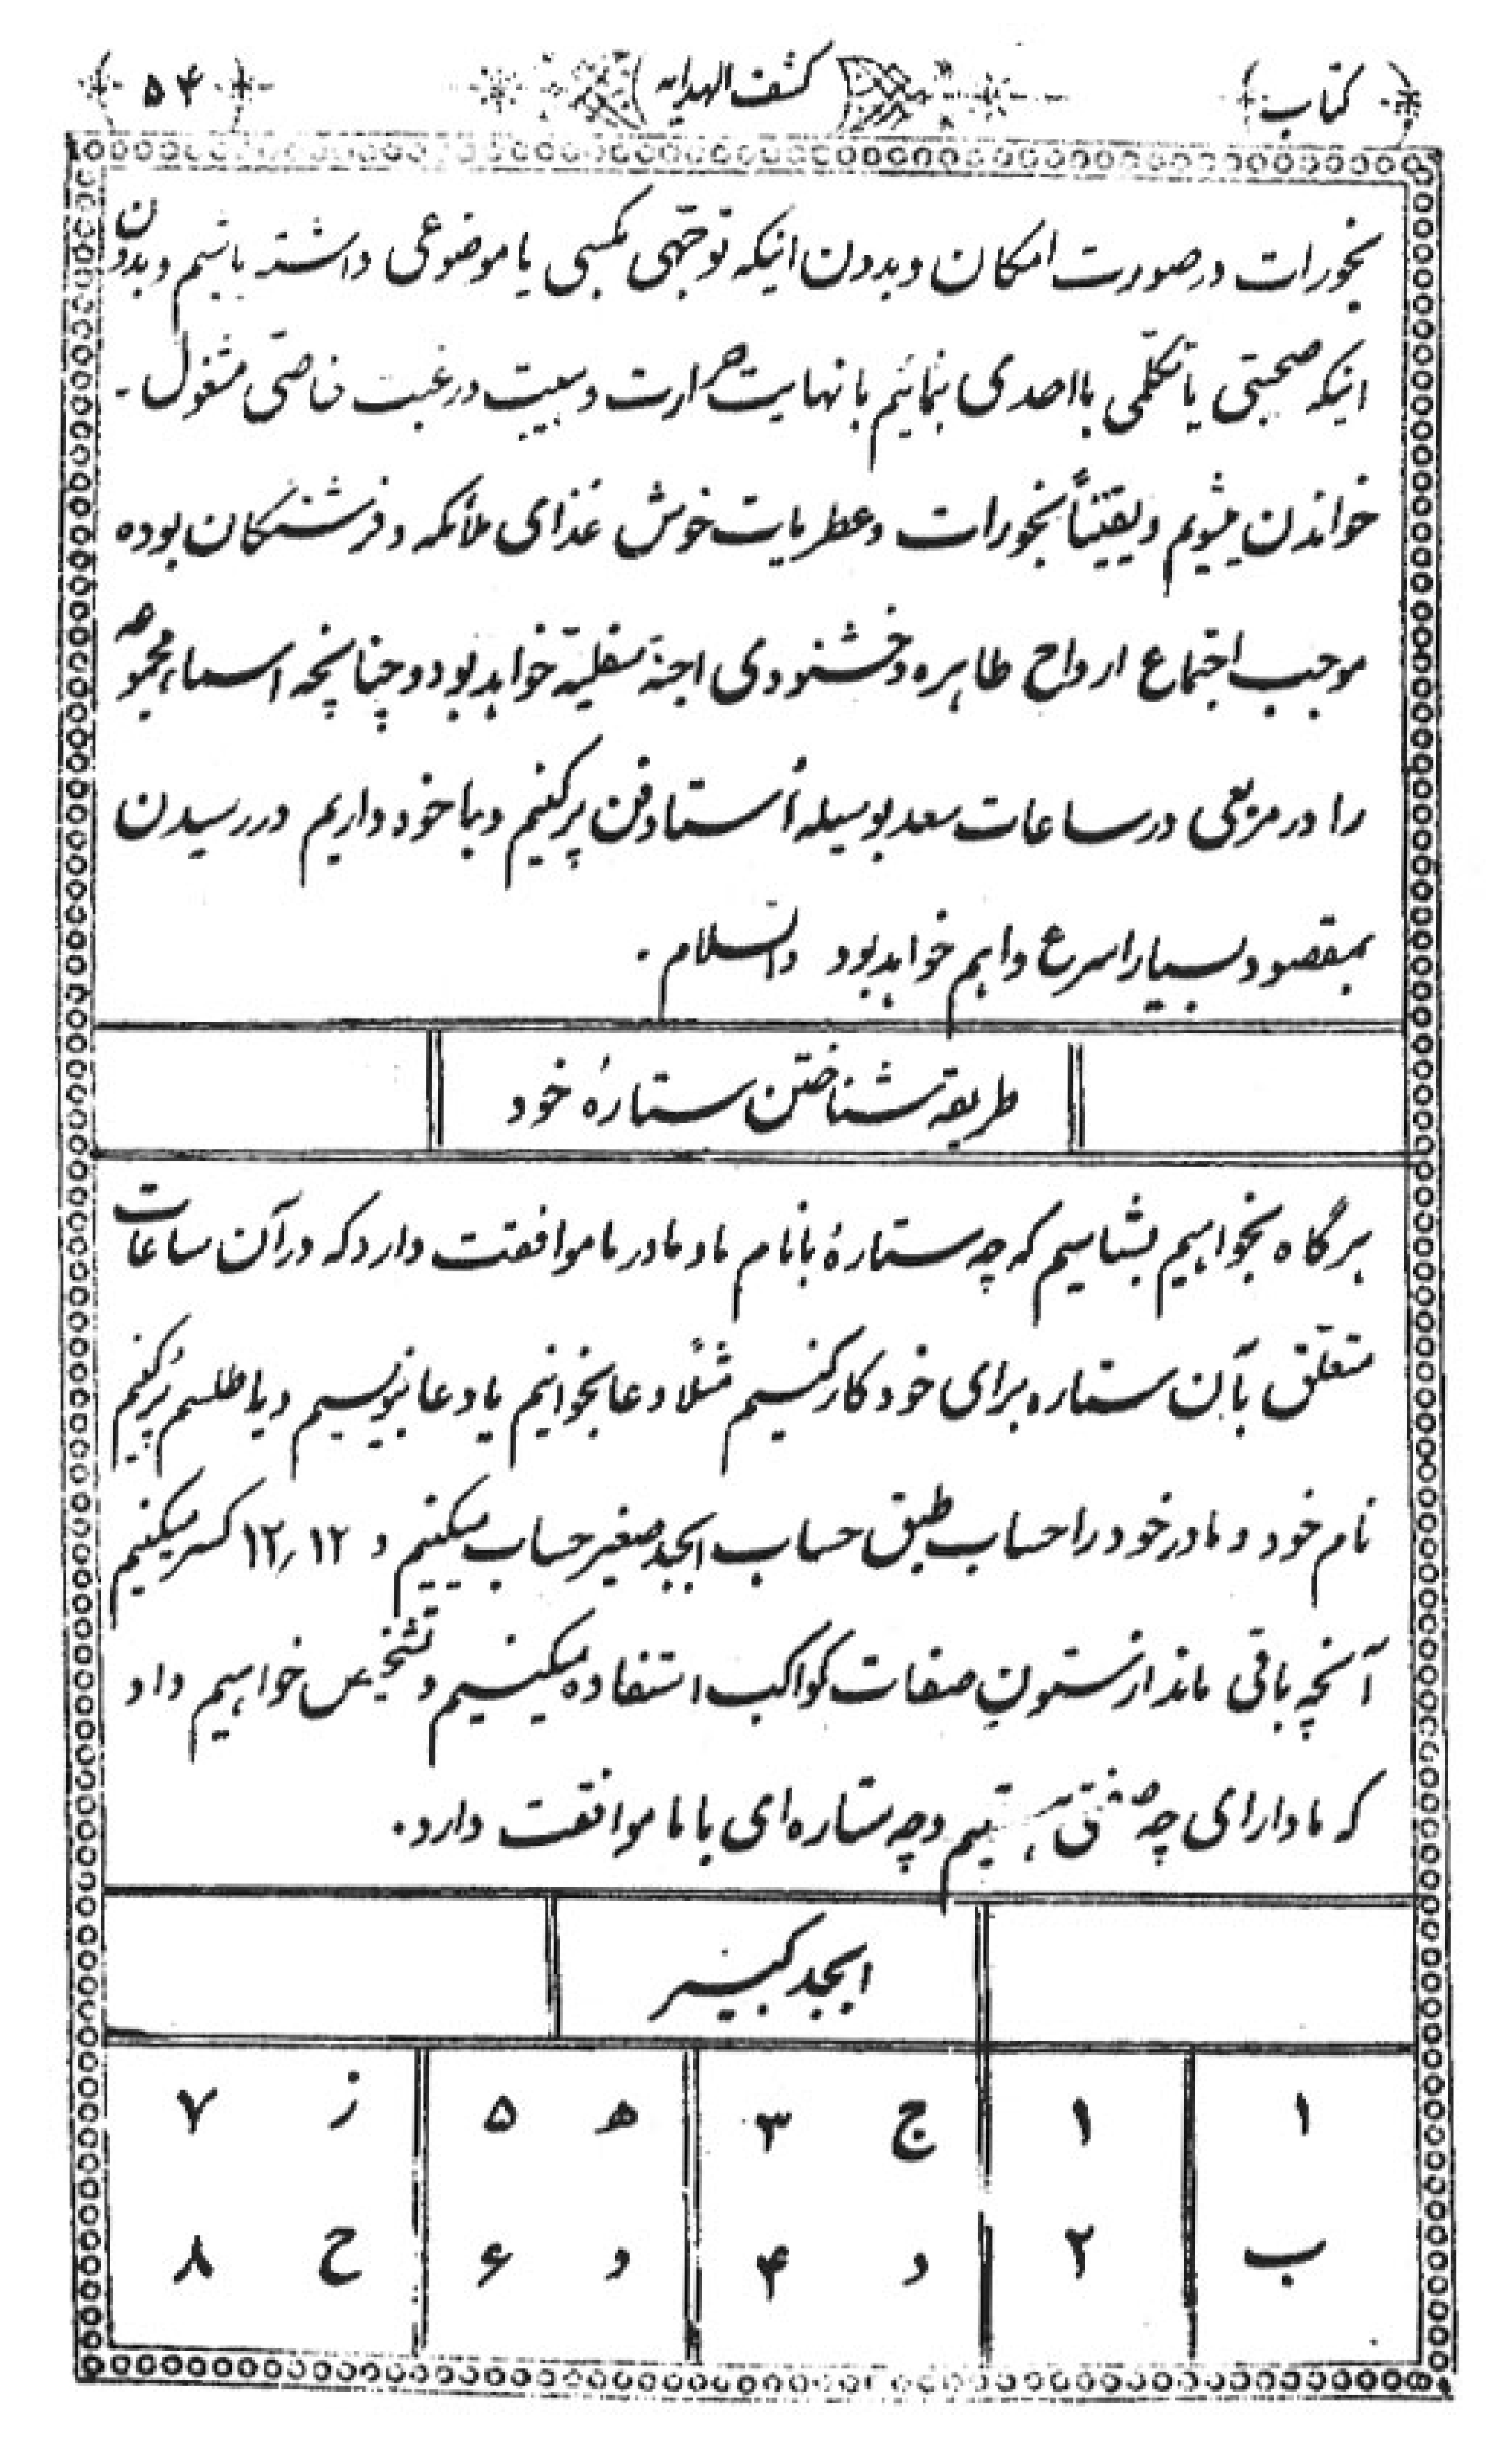 کتاب کشف الهدایه ۵۴
بخورات در صورت امکان و بدون اینکه توجّهی بکسی یا موضوعی داشته باشیم و بدون
اینکه صحبتی یا تکلّمی با احدی بنمائیم با نهایت حرارت و سبیت و رغبت خاصّی مشغول -
خواندن میشویم و یقیناً بخورات و عطریات خوش غذای ملائکه و فرشتگان بوده
موجب اجتماع ارواح طاهره و خشنودی اجنّهٔ سفلیّه خواهد بود و چنانچه اسماء مجموعه
را در مربعی در ساعات سعد بوسیله استاد فن پر کنیم و با خود داریم در رسیدن
بمقصود بسیار اسرع و اهم خواهد بود والسّلام .
طریقه شناختن ستارهٔ خود
هرگاه بخواهیم بشناسیم که چه ستارهٔ با نام ما و مادر ما موافقت دارد که در آن ساعات
متعلّق بآن ستاره برای خود کار کنیم مثلاً دعا بخوانیم یا دعا بنویسیم و یا طلسم پُر کنیم
نام خود و مادر خود را حساب طبق حساب ابجد صغیر حساب میکنیم و ۱۲٫۱۲ کسر میکنیم
آنچه باقی ماند از ستونِ صفات کواکب استفاده میکنیم و تشخیص خواهیم داد
که ما دارای چه صفتی هستیم و چه ستاره‌ای با ما موافقت دارد.
ابجد کبیر
ا ۱ ج ۳ ه ۵ ز ۷
ب ۲ د ۴ و ۶ ح ۸